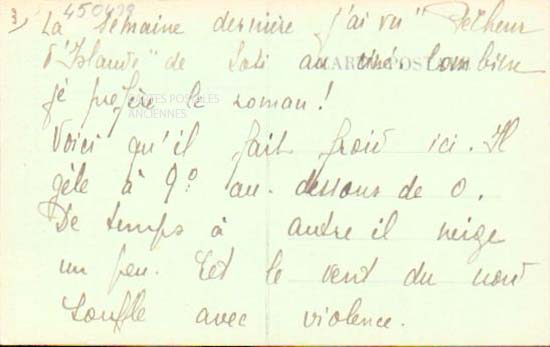 3) 450479
La semaine dernière j'ai vu "Pêcheur
d'Islande" de Loti au ciné. Combien
CARTE POSTALE
je préfère le roman!
CARTES POSTALES
ANCIENNES
Voici qu'il fait froid ici. Il
gèle à 9° au-dessous de 0.
De temps à autre il neige
un peu. Et le vent du nord
souffle avec violence.